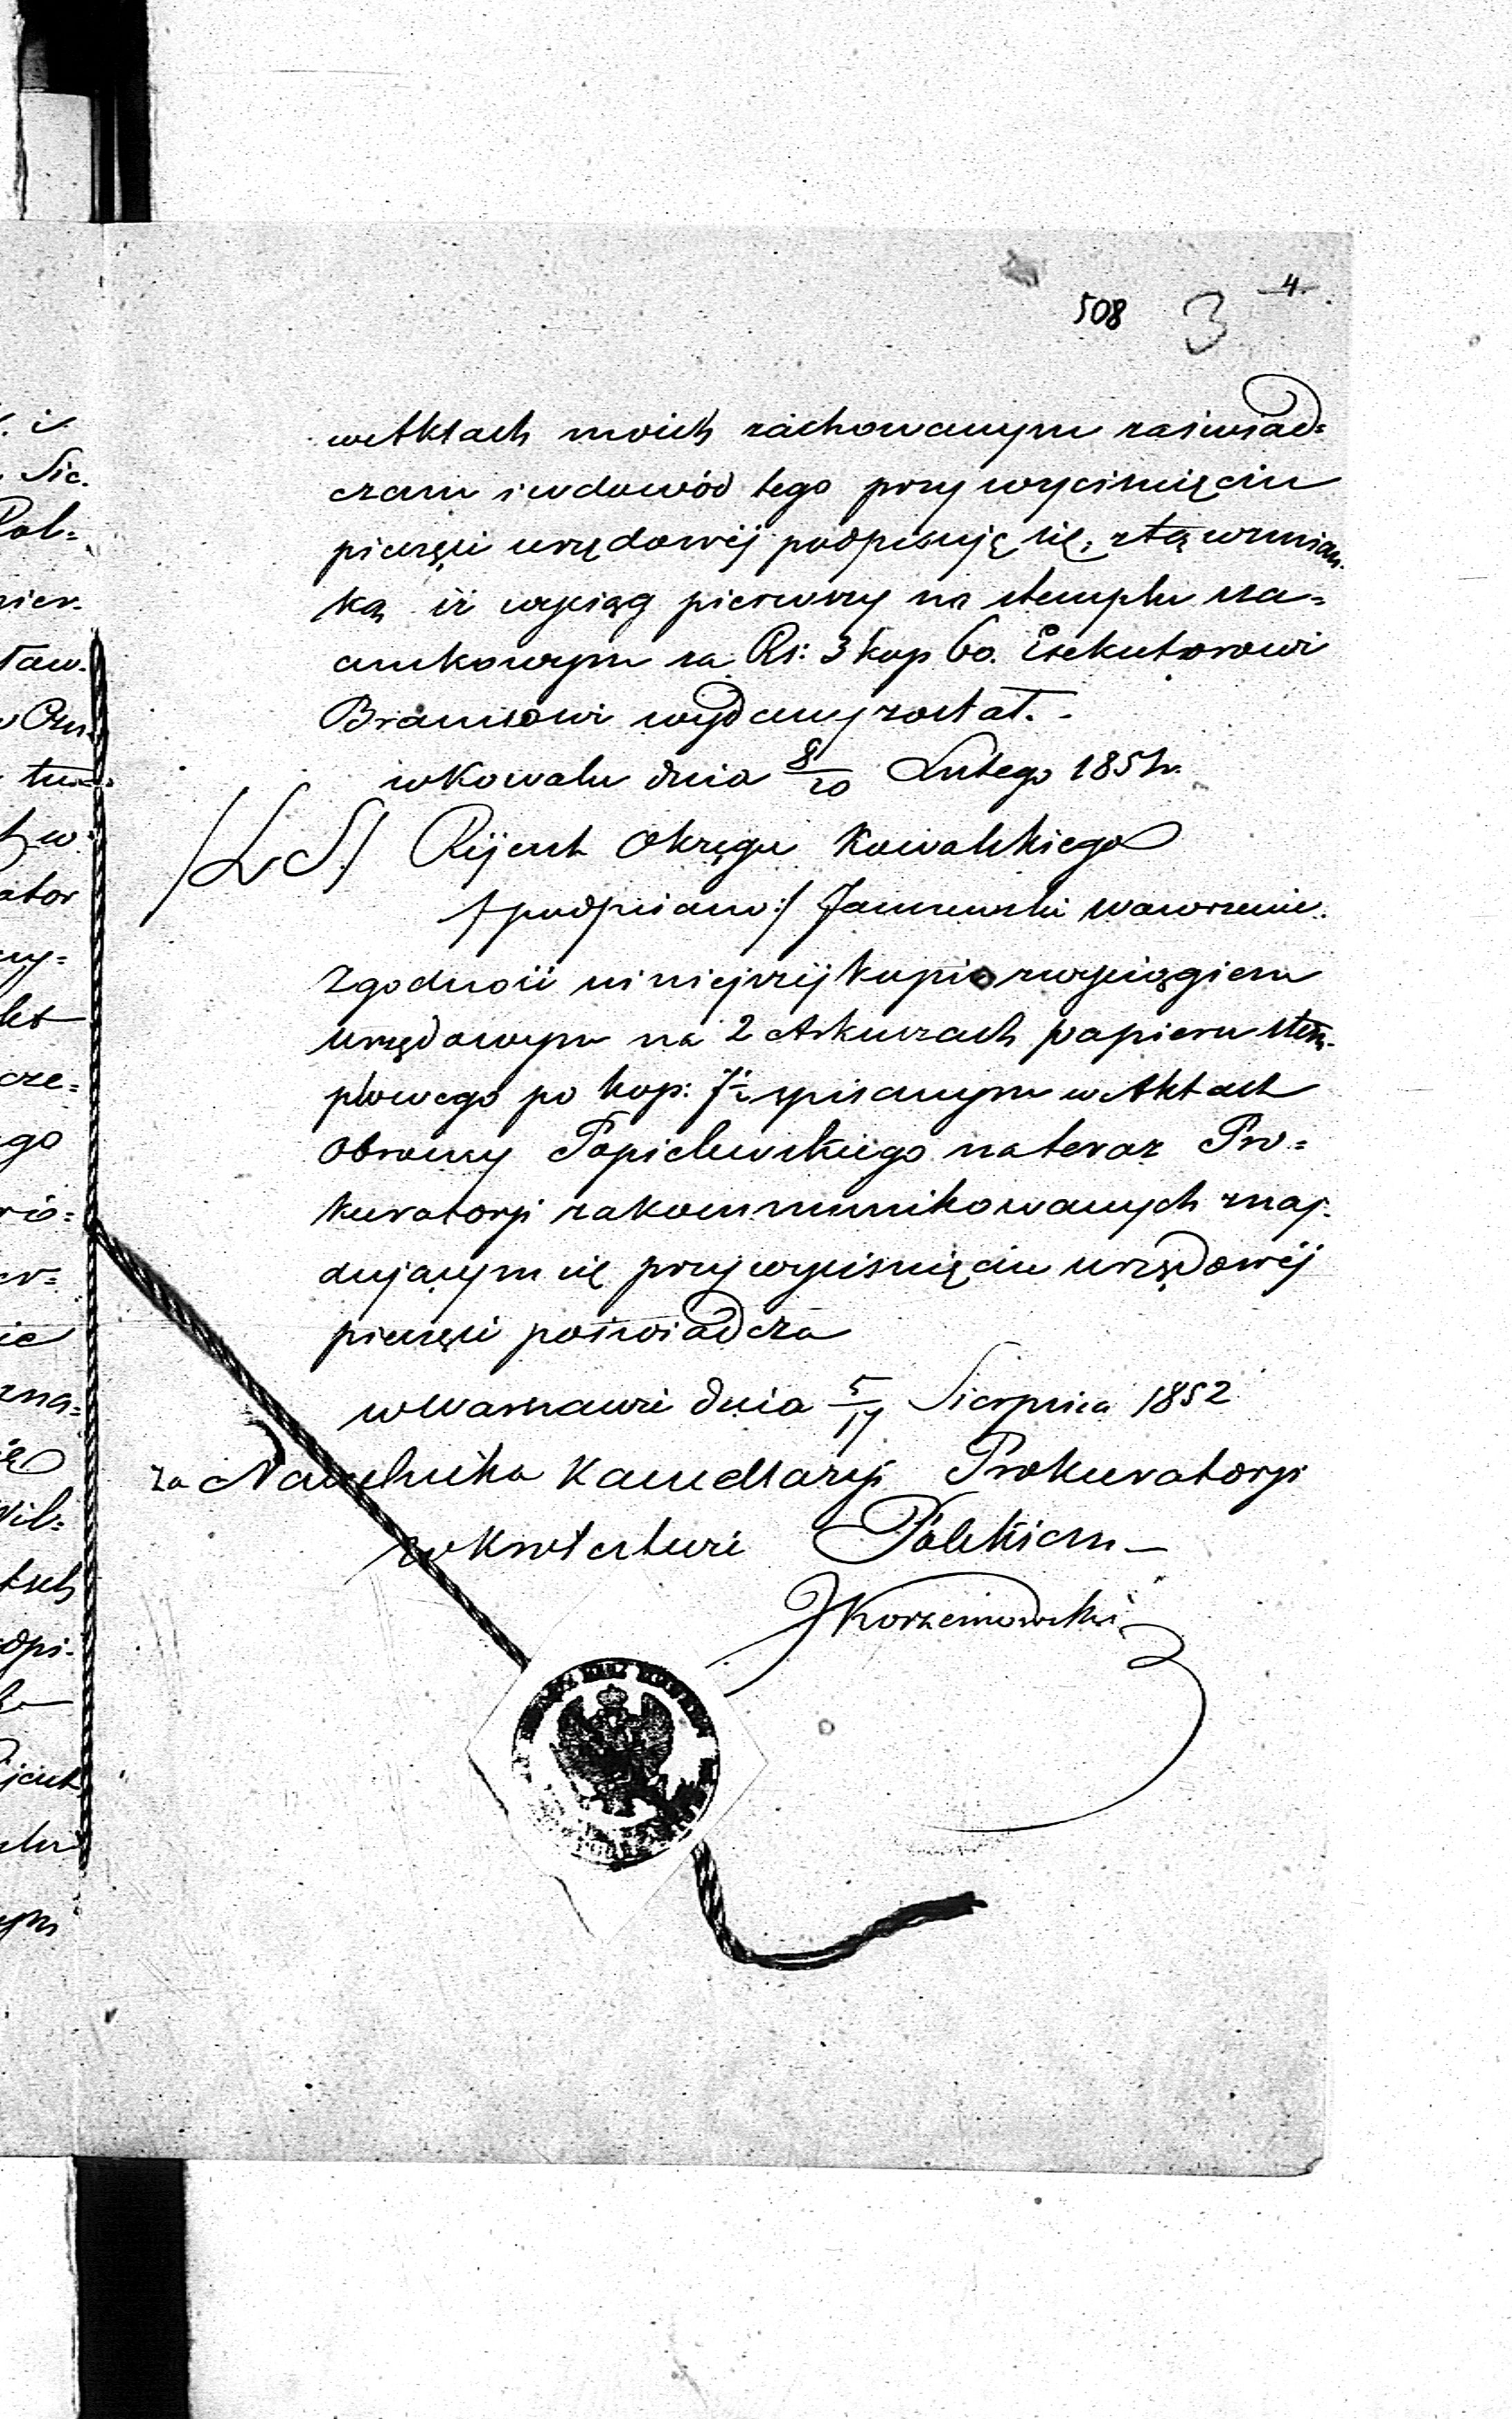 508 3 4
w Aktach moich zachowanym zaświad=
czam i w dowód tego przy wyciśnięciu
pieczęci urzędowéj podpisuję się, z tą wzmian.
ką iż wyciąg pierwszy na stemplu sza=
cunkowym za Rs: 3 kop 60. Exekutorowi
wydany został. -
w Kowalu dnia 8/20 Lutego 185
/L S/ Rejent Okręgu Kowalskiego
/podpisano:/ Wawrzeniec.
Zgodność niniejszéj kopii z wyciągiem
urzędowym na 2 Arkuszach papieru stem.
plowego po kop: 7½ spisanym w Aktach
Obrońcy Popielewskiego na teraz Pro=
kuratorji zakommunikowanych znaj.
dującym się przy wyciśnięciu urzędowéj
pieczęci poświadcza
w Warszawie dnia 5/17 Sierpnia 1852
za Naczelnika Kancellaryi Prokuratoryi
w Królestwie Polskiem -
JKorzeniowski